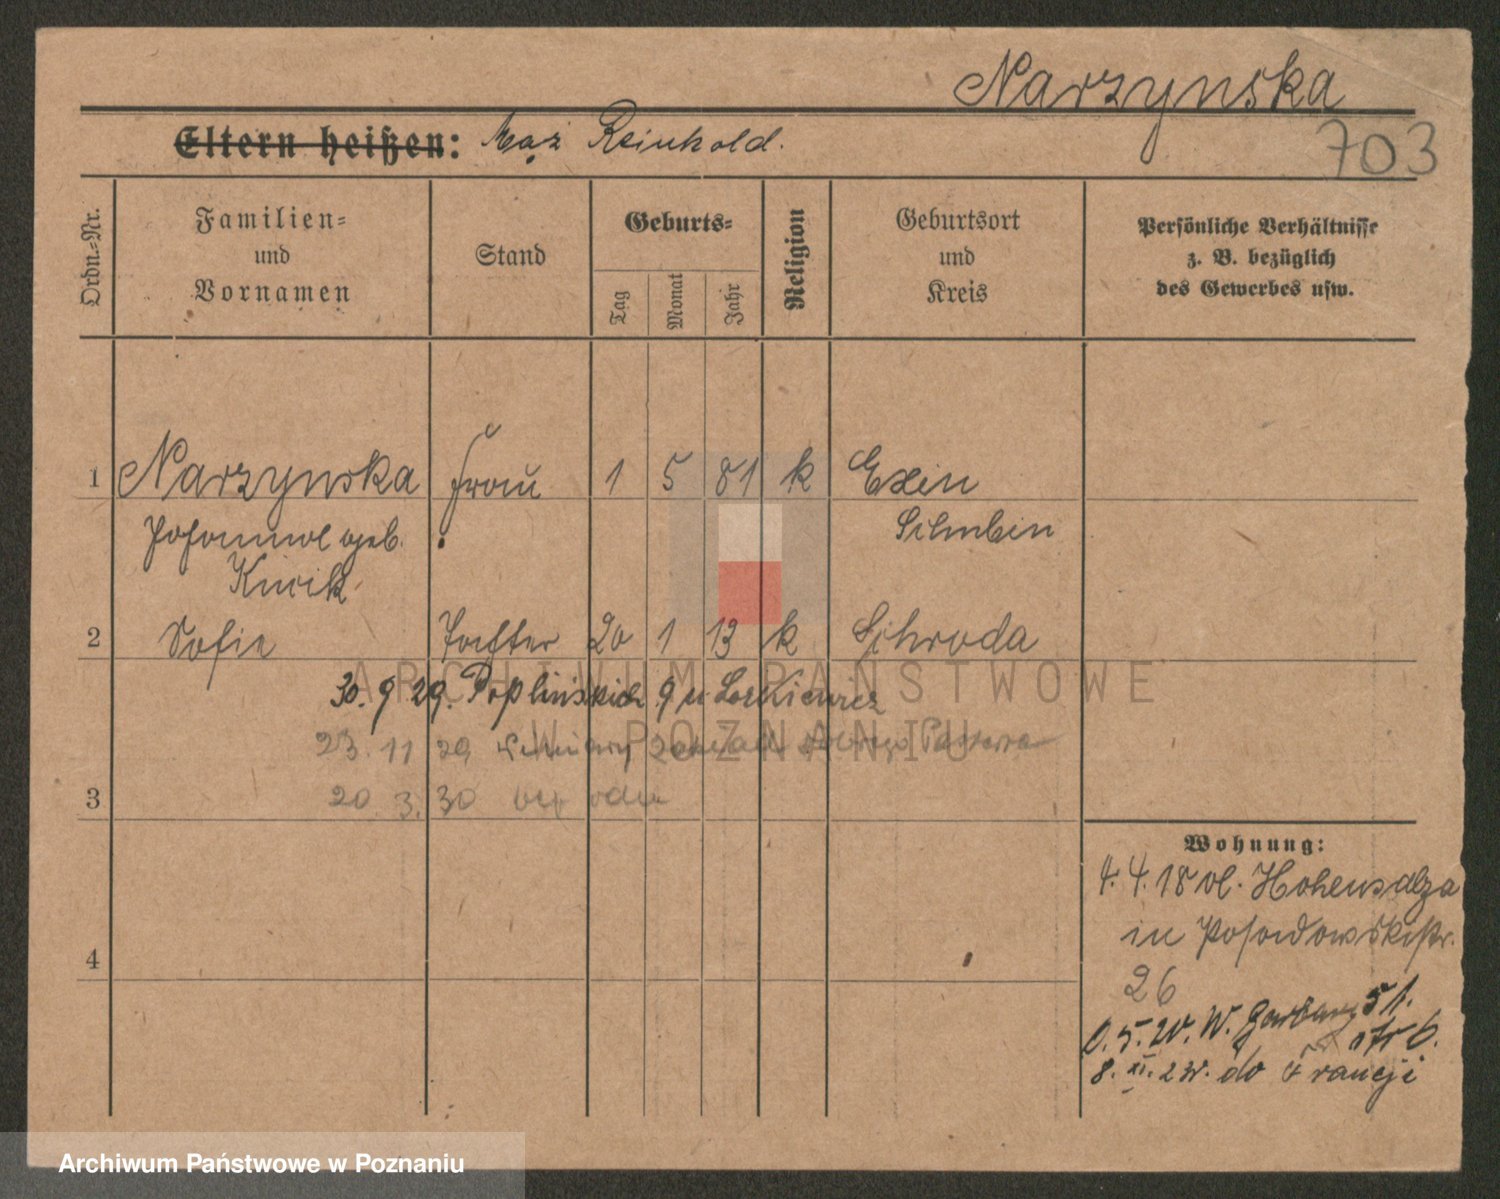 Narzynska
703
Eltern heißen: Mąż Reinhold.
Ordn.-Nr.
Familien- und Vornamen
Stand
Geburts-
Tag
Monat
Jahr
Religion
Geburtsort und Kreis
Persönliche Verhältnisse z. B. bezüglich des Gewerbes usw.
1 Narzynska Frau 1 5 81 k Exin
Johanna geb. Schubin
Kwik
2 Sofie Tochter 20 1 13 k Schroda
30. 9 29. Poplińskich 9 u
23. 11 29
3 20 3. 30
Wohnung:
4. 4. 18 vl. Hohensalza
in Posadowskistr.
26
4
5. 20. W. Garbary 51.
8. XI. 23r. do Francji
ARCHIWUM PAŃSTWOWE
W POZNANIU
Archiwum Państwowe w Poznaniu